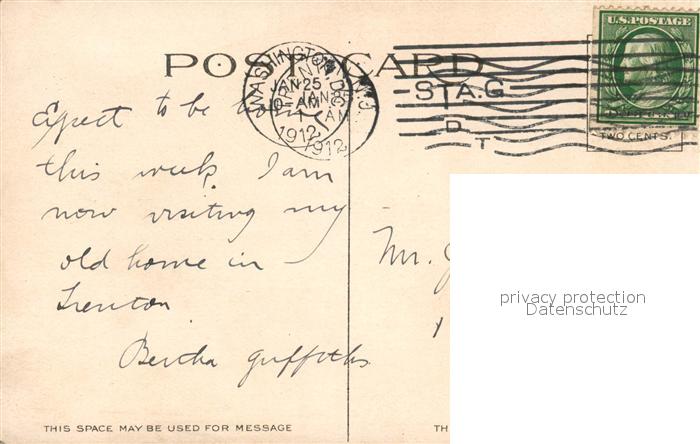 POST CARD
U.S. POSTAGE
WASHINGTON N.J.
JAN 25
AM
1912
1912
STA. G
D
T
TWO CENTS.
Expect to be home
this week. I am
now visiting my
old home in
Trenton
Bertha Griffiths
Mr.
privacy protection
Datenschutz
THIS SPACE MAY BE USED FOR MESSAGE
TH